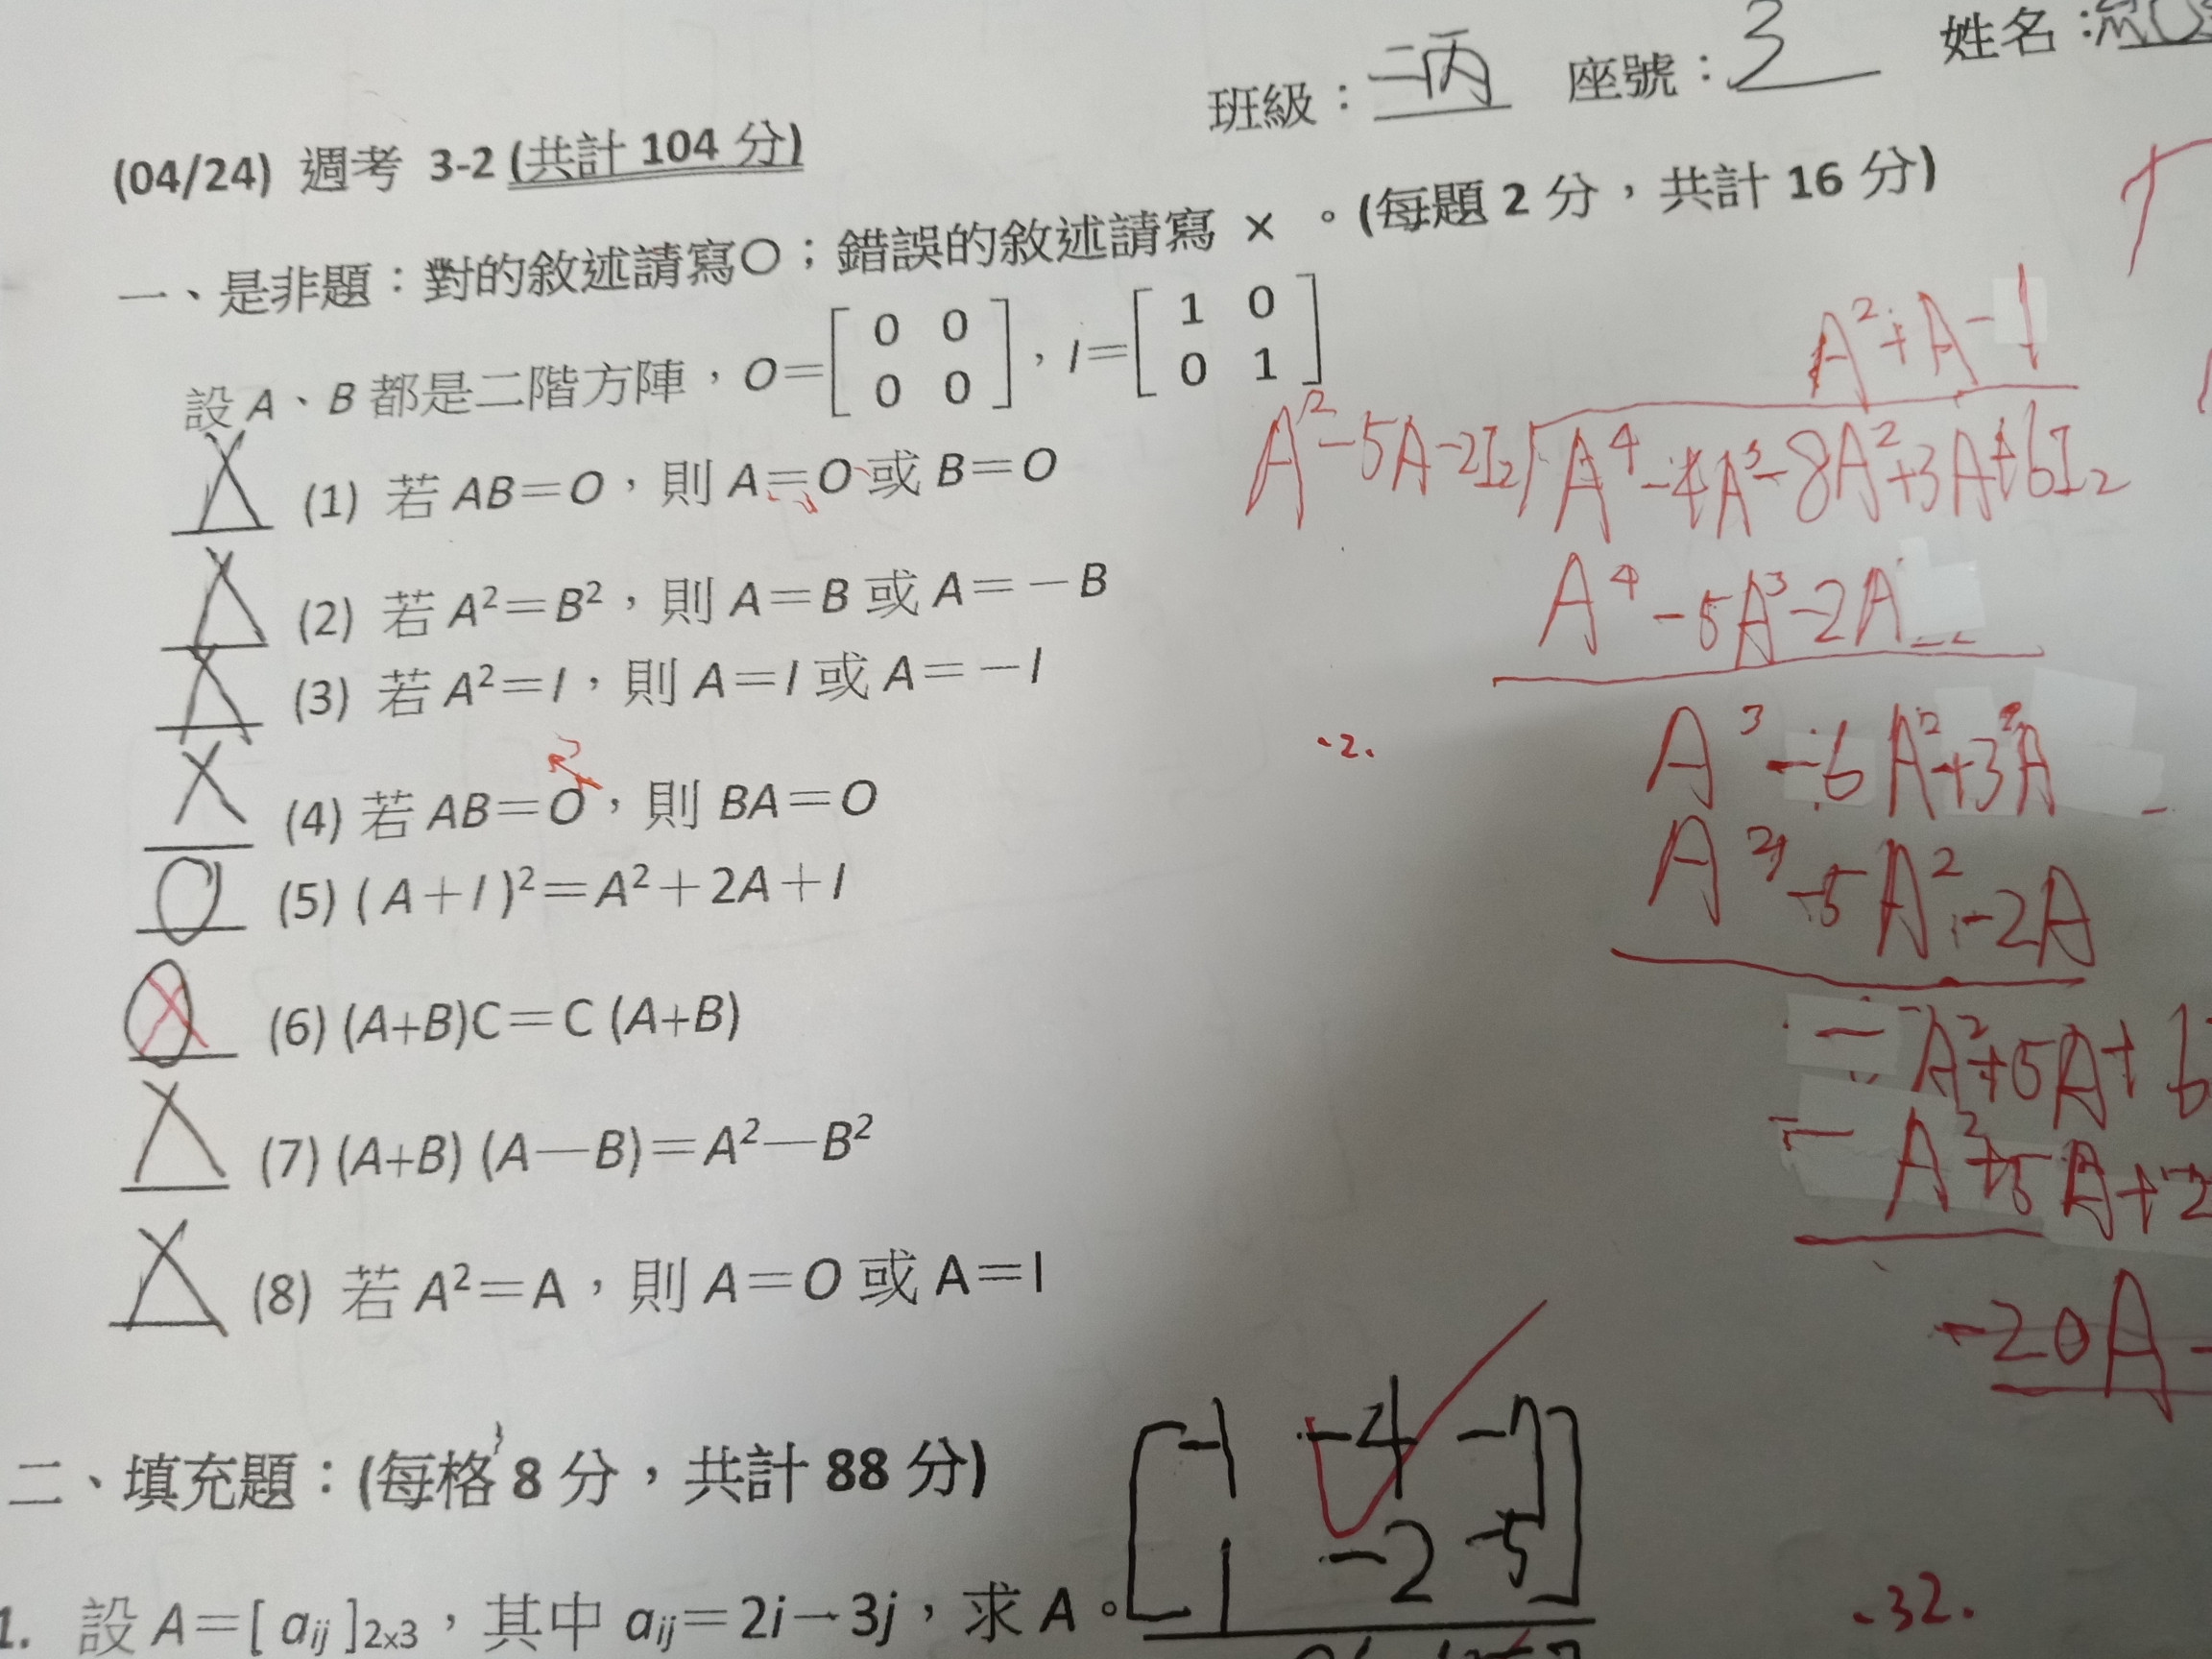 班級：二丙 座號：3 姓名：
(04/24) 週考 3-2 (共計 104 分)
一、是非題：對的敘述請寫○；錯誤的敘述請寫 × 。(每題 2 分，共計 16 分)
設 A、B 都是二階方陣，O＝[0 0 0 0]，I＝[1 0 0 1]
X (1) 若 AB＝O，則 A＝O 或 B＝O
X (2) 若 A²＝B²，則 A＝B 或 A＝－B
X (3) 若 A²＝I，則 A＝I 或 A＝－I
X (4) 若 AB＝O，則 BA＝O
O (5) ( A＋I )²＝A²＋2A＋I
O (6) (A+B)C＝C (A+B)
X (7) (A+B) (A－B)＝A²－B²
X (8) 若 A²＝A，則 A＝O 或 A＝I
A²+A-1
A²-5A-2I₂ A⁴-4A³-8A²+3A+6I₂
A⁴-5A³-2A
A³-6A²+3A
A³-5A²-2A
-A²+5A+6
-A²+5A+2
-20A-
-2.
二、填充題：(每格 8 分，共計 88 分)
1. 設 A＝[ aᵢⱼ ]₂ₓ₃，其中 aᵢⱼ＝2i－3j，求 A。
-1 -4 -7
1 -2 -5
-32.